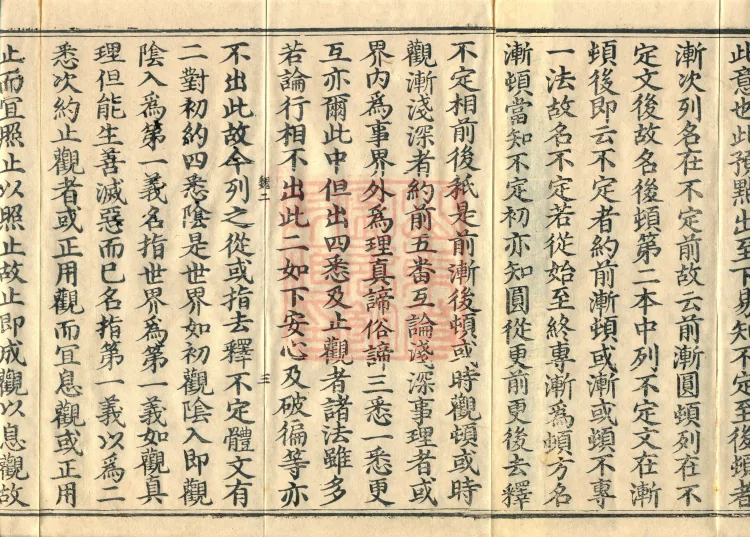 此意也此預點出至下易知不定至後頓者
漸次列名在不定前故云前漸圓頓列在不
定文後故名後頓第二本中列不定文在漸
頓後即云不定者約前漸頓或漸或頓不專
一法故名不定若從始至終專漸爲頓方名
漸頓當知不定初亦知圓從更前更後去釋
不定相前後秖是前漸後頓或時觀頓或時
觀漸淺深者約前五番互論淺深事理者或
界內爲事界外爲理真諦俗諦三悉一悉更
互亦爾此中但出四悉及止觀者諸法雖多
若論行相不出此二如下安心及破徧等亦
三
不出此故今列之從或指去釋不定體文有
二對初約四悉陰是世界如初觀陰入即觀
陰入爲第一義名指世界爲第一義如觀真
理但能生善滅惡而已名指第一義以爲二
悉次約止觀者或正用觀而宜息觀或正用
止而宜照止以照止故止即成觀以息觀故